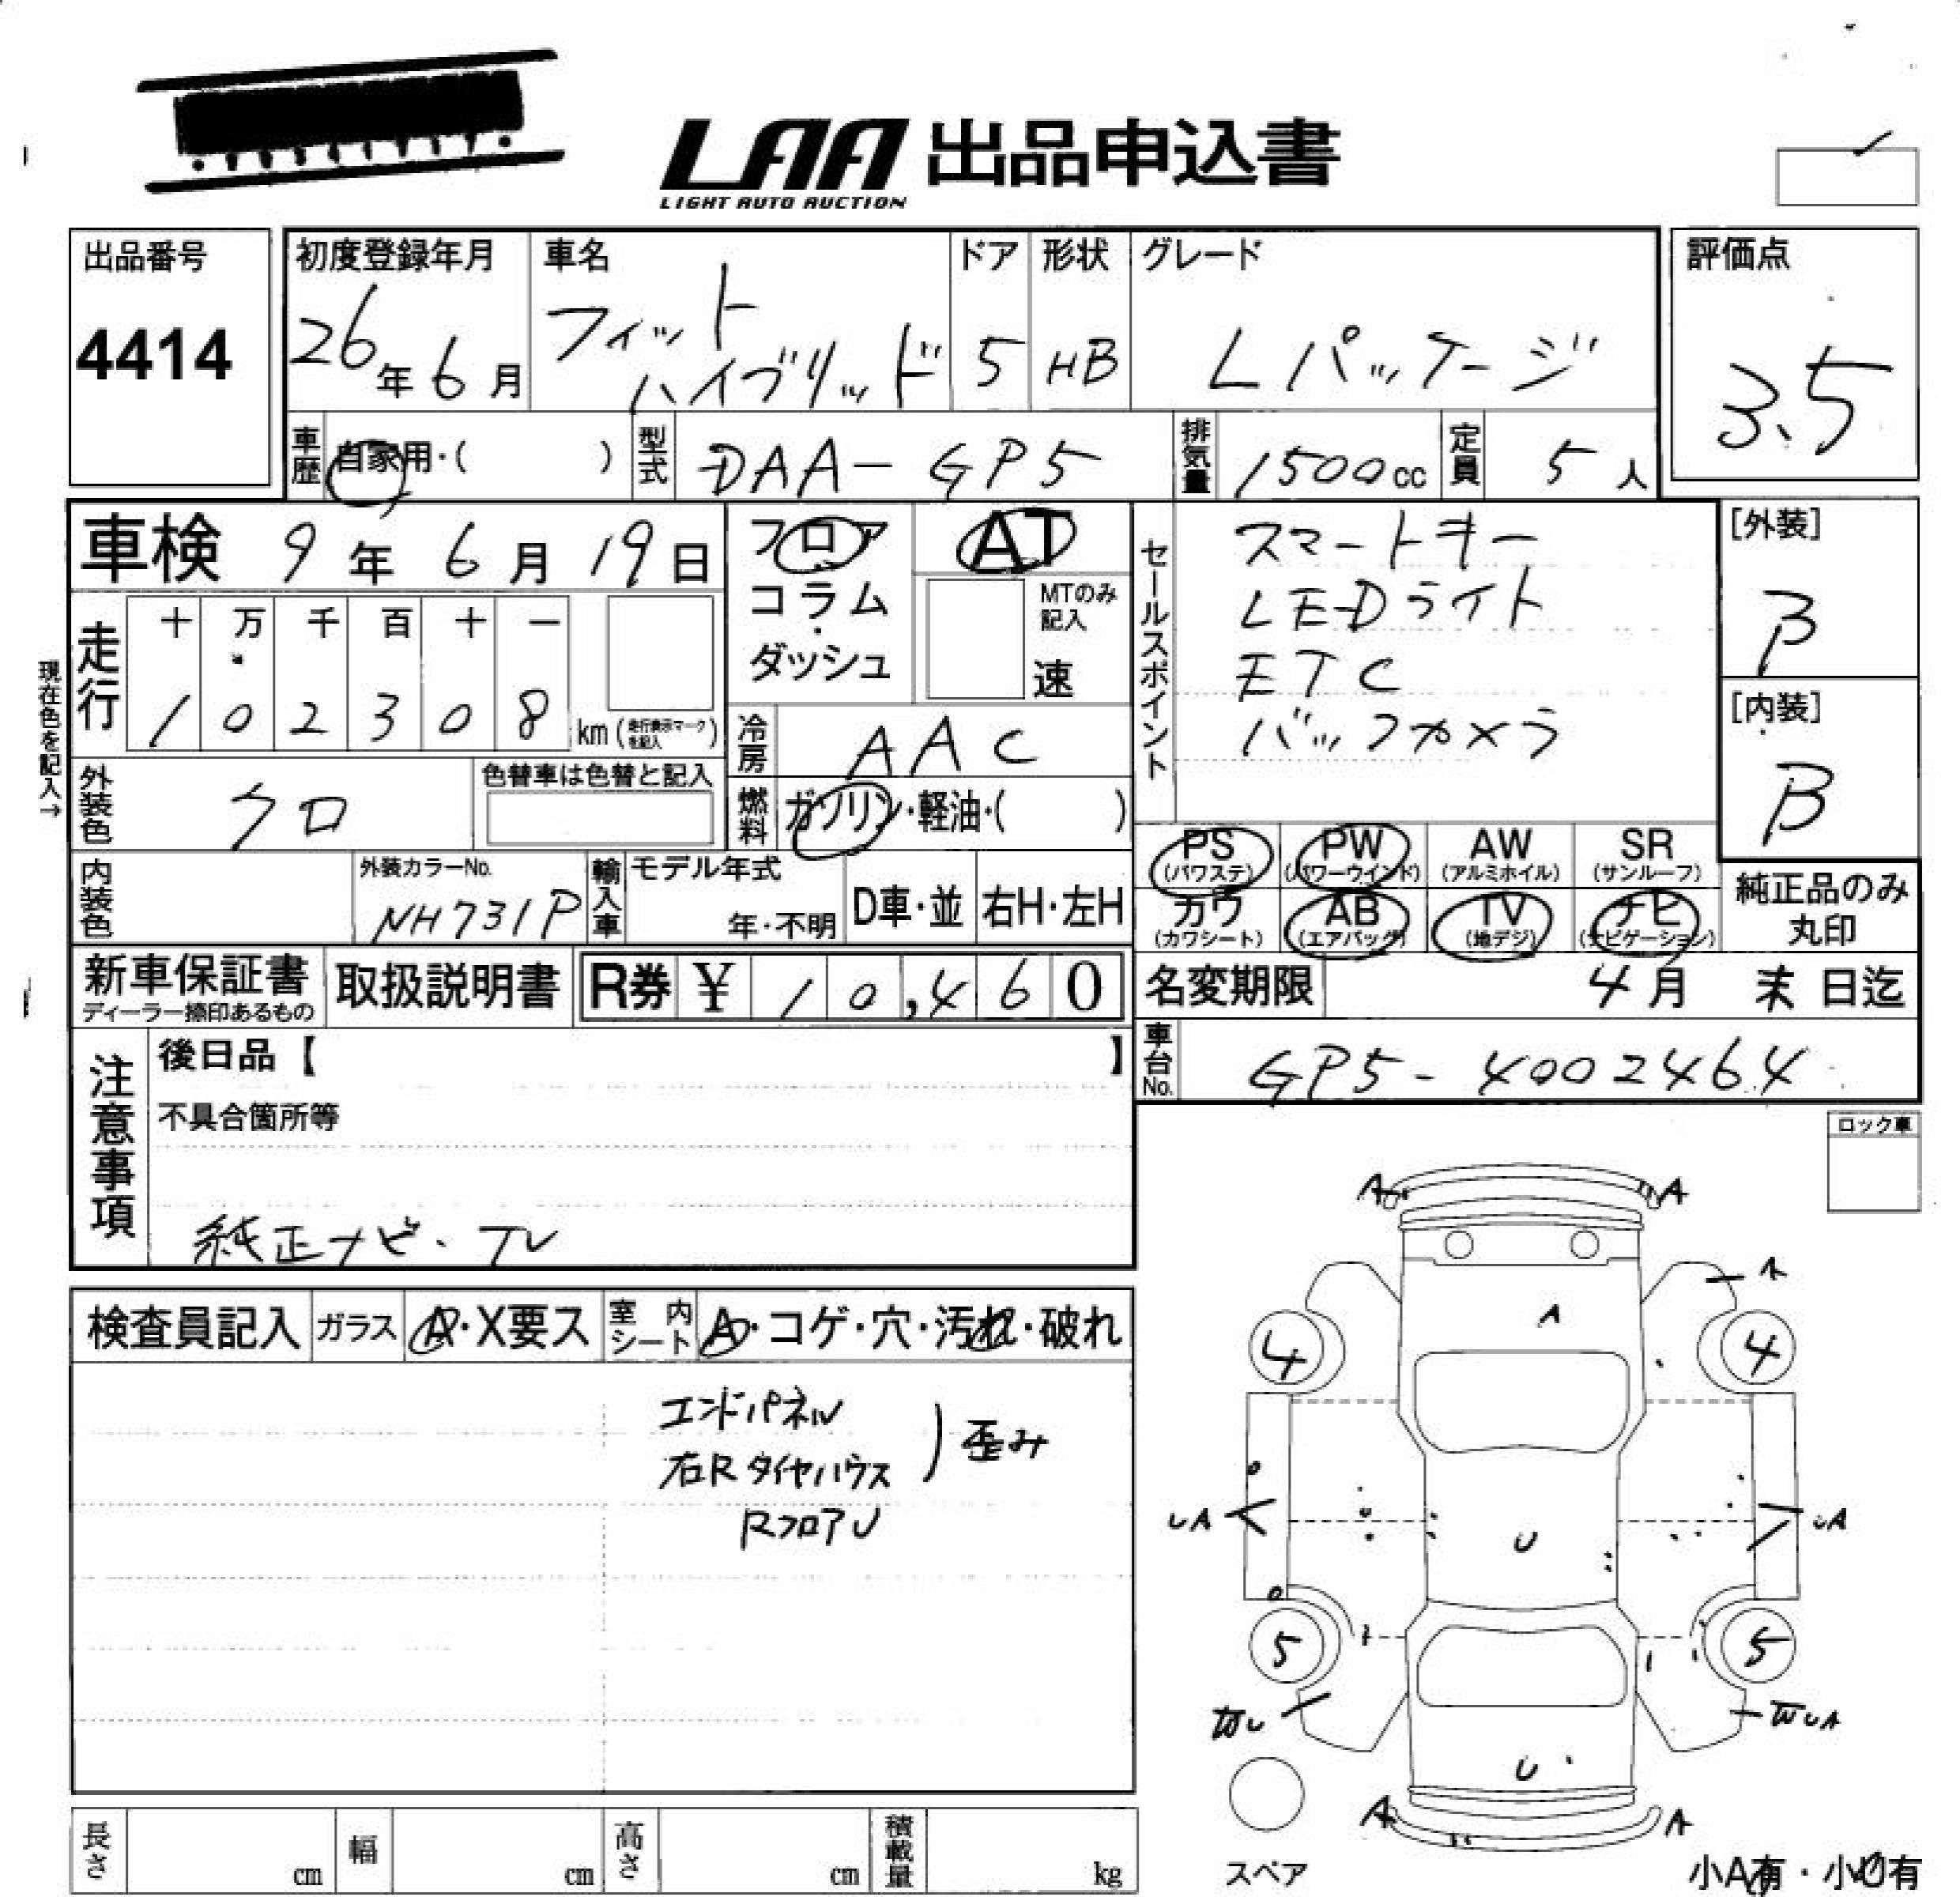 LAA 出品申込書
LIGHT AUTO AUCTION
出品番号
4414
初度登録年月
26年6月
車名
フィット
ハイブリッド
ドア
5
形状
HB
グレード
Lパッケージ
評価点
3.5
車歴 自家用・( )
型式 DAA-GP5
排気量 1500cc
定員 5人
車検 9年6月19日
フロア
コラム
・
ダッシュ
AT
MTのみ
記入
速
セールスポイント
スマートキー
LEDライト
ETC
バックカメラ
[外装]
B
[内装]
B
現在色を記入→
走行
十 万 千 百 十 一
1 0 2 3 0 8 km (走行表示マークを記入)
冷房 AAC
外装色 クロ
色替車は色替と記入
燃料 ガソリン・軽油・( )
PS (パワステ)
PW (パワーウインド)
AW (アルミホイル)
SR (サンルーフ)
カワ (カワシート)
AB (エアバッグ)
TV (地デジ)
ナビ (ナビゲーション)
純正品のみ
丸印
内装色
外装カラーNo.
NH731P
輸入車
モデル年式
年・不明
D車・並
右H・左H
新車保証書
ディーラー捺印あるもの
取扱説明書
R券 ¥ 10,460
名変期限 4月 末日迄
車台No. GP5-4002464
注意事項
後日品【 】
不具合箇所等
純正ナビ・TV
ロック車
検査員記入
ガラス A・X要ス
室内シート A・コゲ・穴・汚れ・破れ
エンドパネル
右Rタイヤハウス
) 歪み
RフロアU
A A
A
A
4 4
UA UA
U
5 5
U
A A
スペア
小A有・小U有
長さ cm
幅 cm
高さ cm
積載量 kg